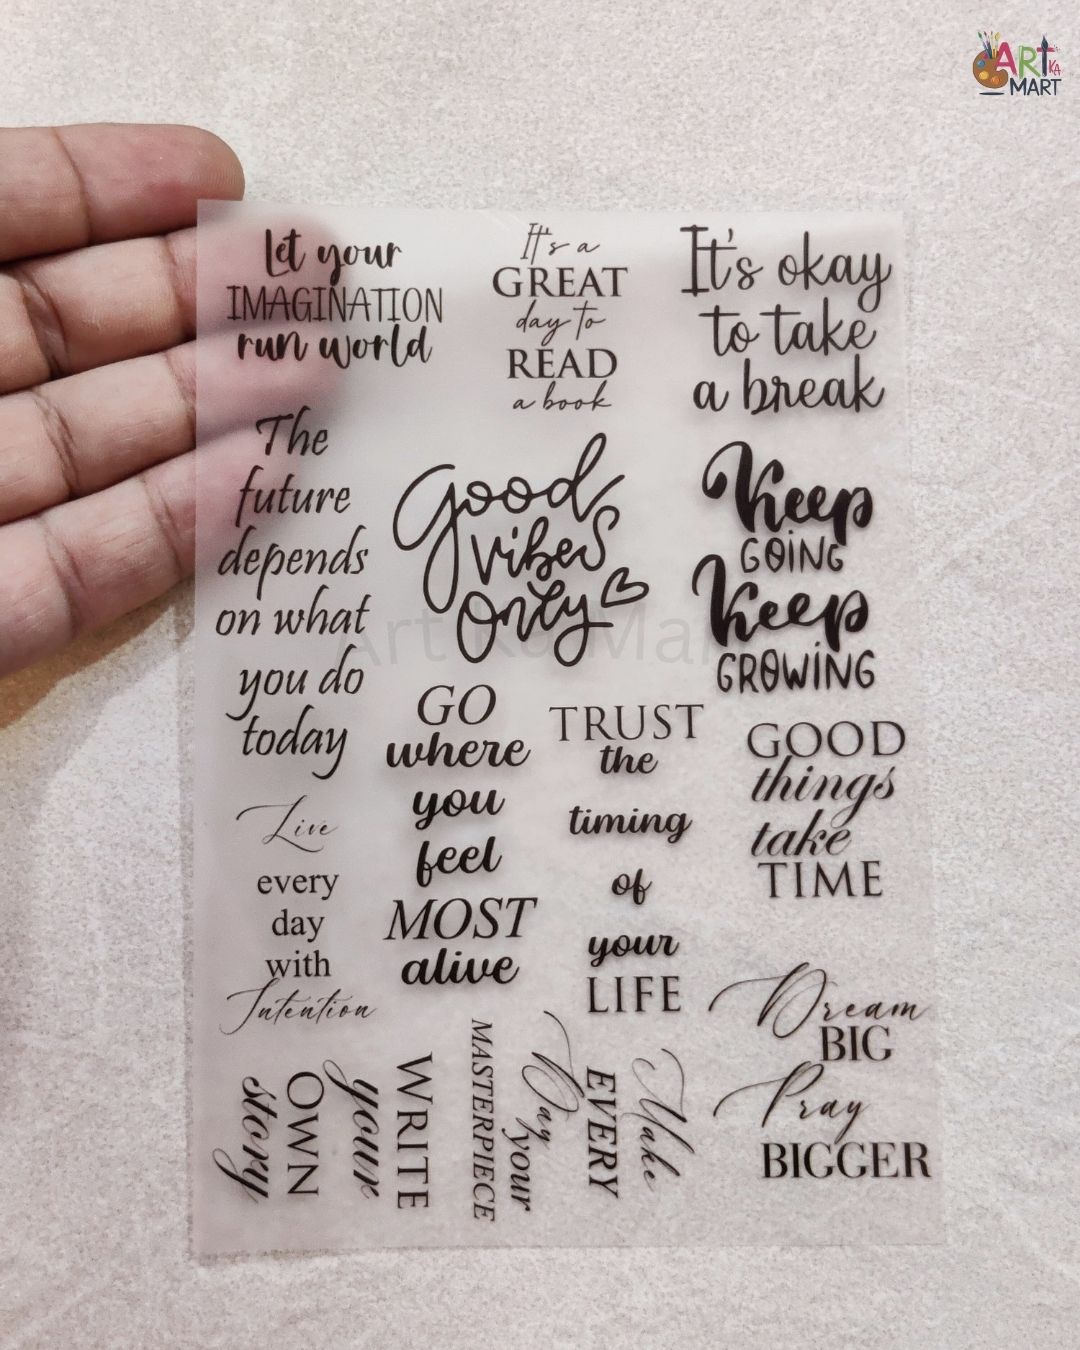 ART
KA
MART
Let your
IMAGINATION
run world
It's a
GREAT
day to
READ
a book
It's okay
to take
a break
The
future
depends
on what
you do
today
Good
vibes
Only
Keep
GOING
Keep
GROWING
Art Ka Mar
GO
where
you
feel
MOST
alive
TRUST
the
timing
of
your
LIFE
GOOD
things
take
TIME
Live
every
day
with
Intention
Dream
BIG
Pray
BIGGER
WRITE
your
OWN
story
Make
EVERY
Day
your
MASTERPIECE